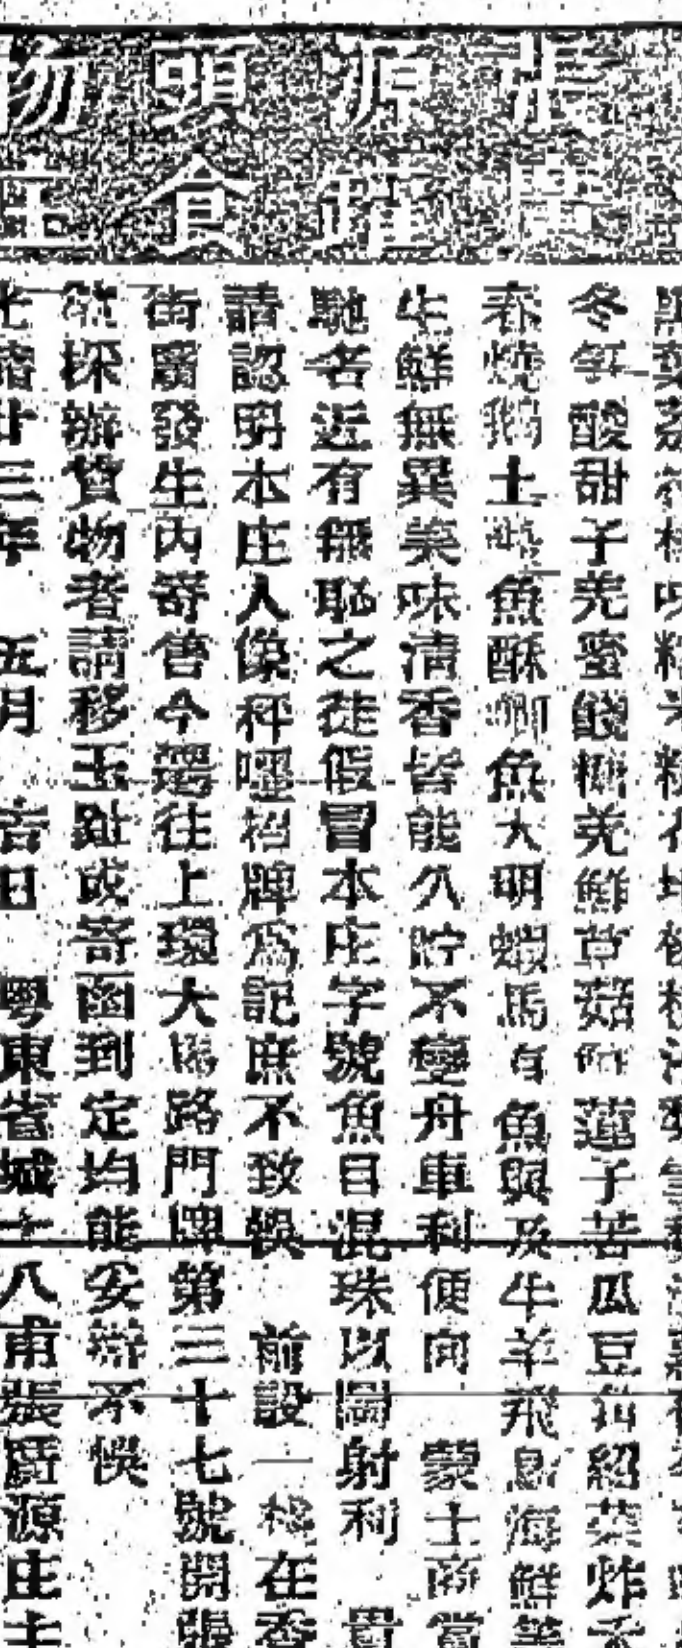 張
源
頭
物
廣
罐
食
主
冬筍酸甜子羌蜜餞糖羌鮮草菇鮮蓮子苦瓜豆角紹菜炸
春燒鵝土魚酥魚大明蝦馬有魚與及牛羊飛禽海鮮等
生鮮無異美味清香皆能久貯不變舟車利便向 蒙士商當
馳名近有無恥之徒假冒本庄字號魚目混珠以圖射利 貴
請認明本庄人像秤嘜招牌為記庶不致悞 前設一檯在香
街廣發生內寄售今遷往上環大馬路門牌第三十七號開張
欲採辦貨物者請移玉趾或寄函到定均能妥辦不悞
光緒廿三年 五月 吉日 粵東省城十八甫張廣源庄主